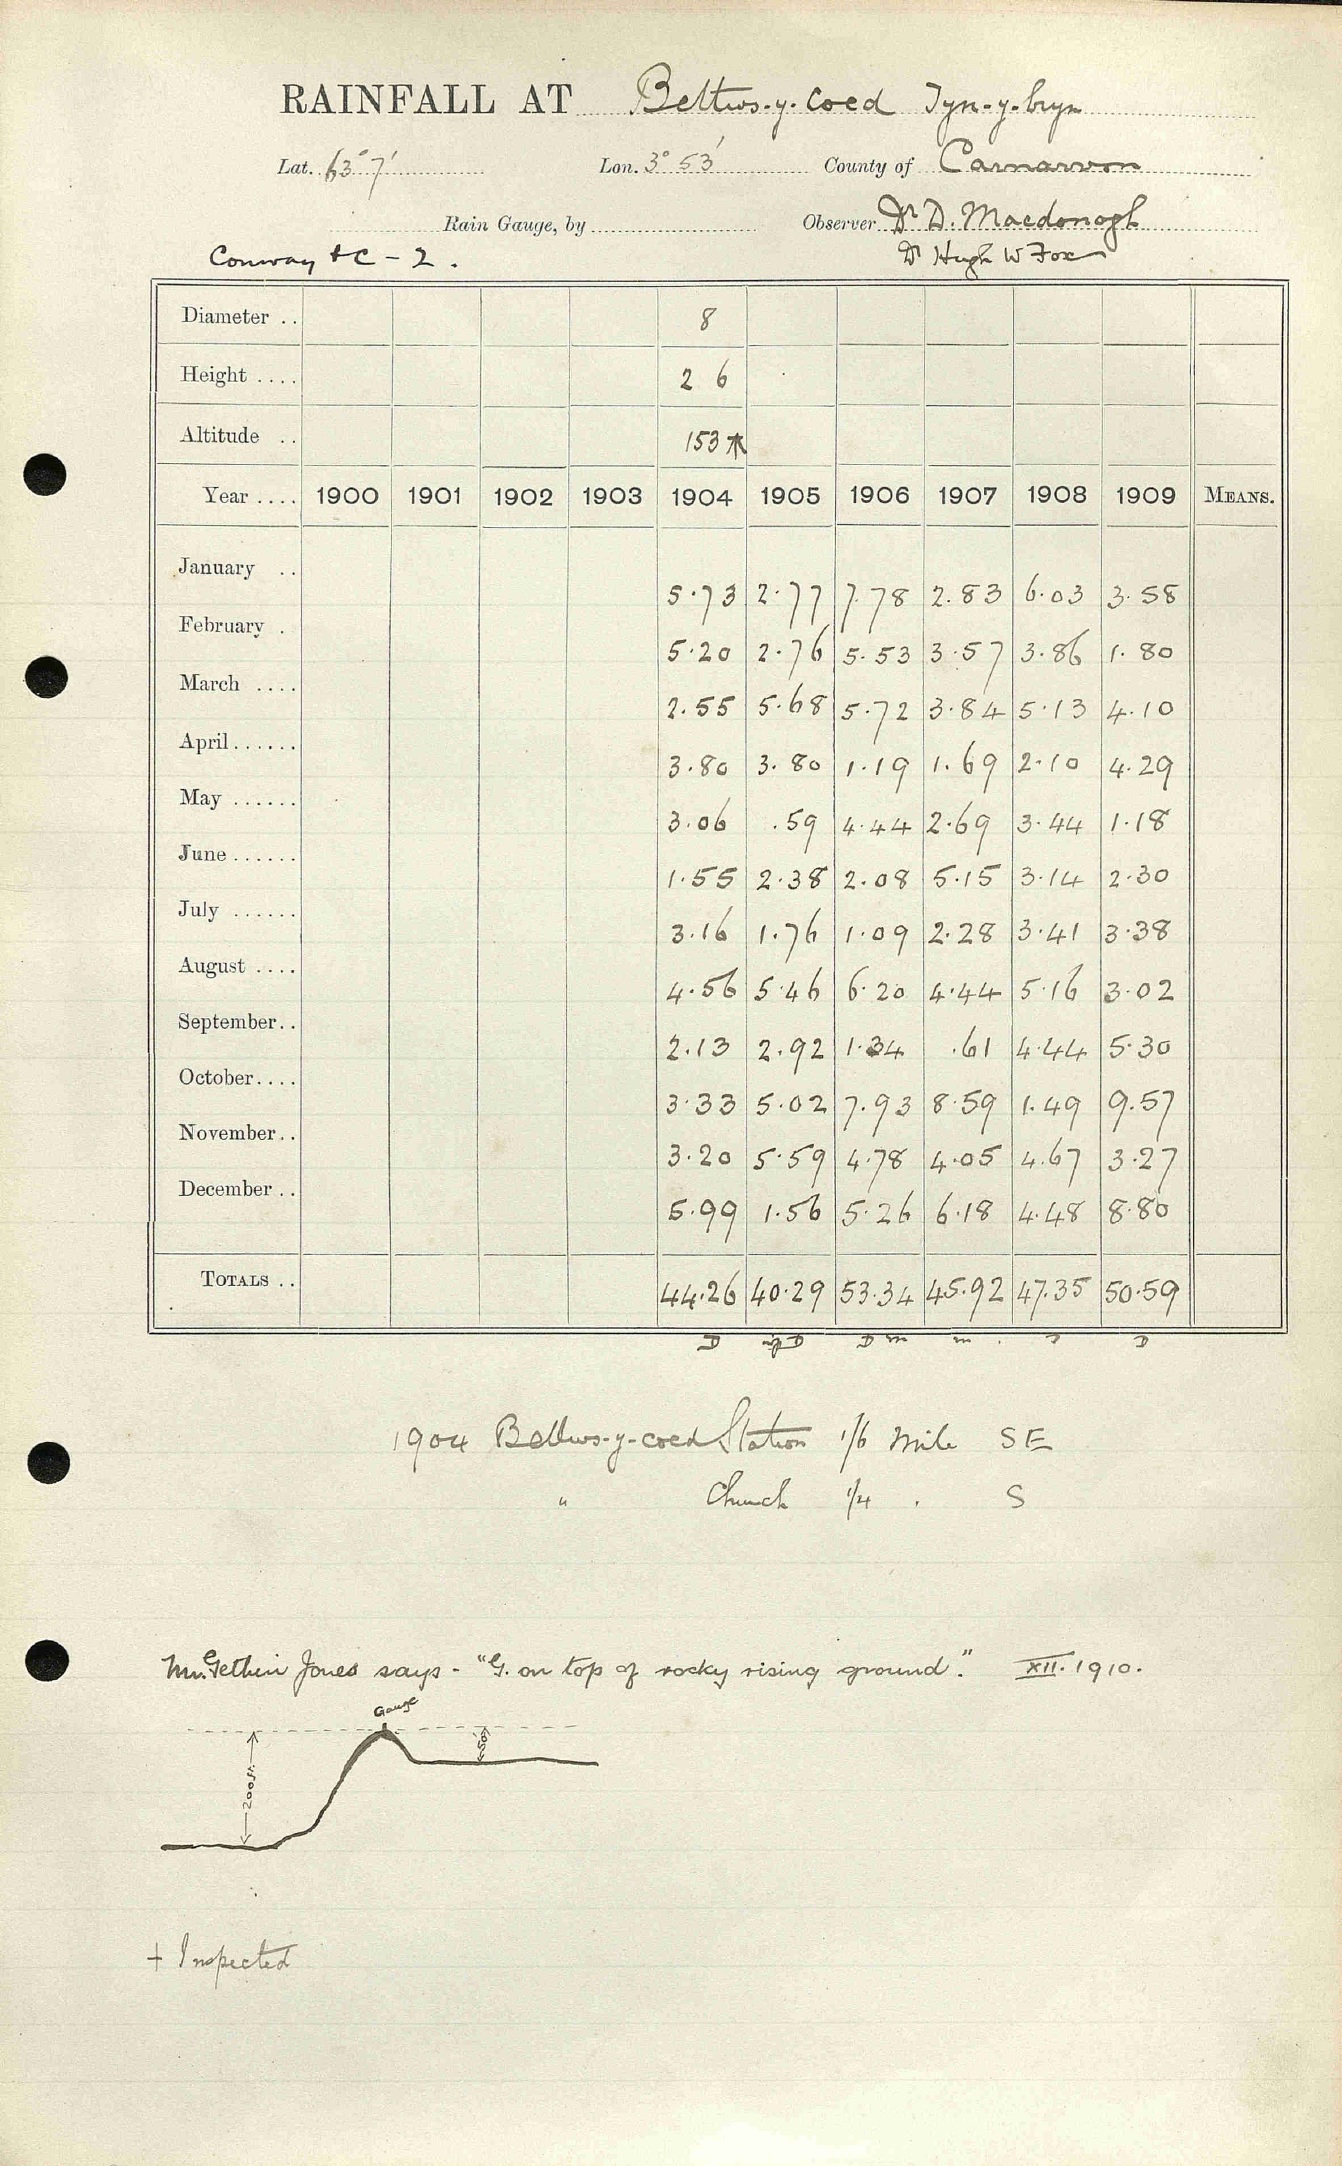 RAINFALL AT Bettws-y-Coed Tyn-y-bryn
Lat. 53° 7' Lon. 3° 53' County of Carnarvon
Rain Gauge, by Observer Dr D. Macdonogh
Conway &C - 2. Dr Hugh W Fox
Diameter .. 8
Height .... 2 6
Altitude .. 153
Year .... 1900 1901 1902 1903 1904 1905 1906 1907 1908 1909 MEANS.
January .. 5.73 2.77 7.78 2.83 6.03 3.58
February . 5.20 2.76 5.53 3.57 3.86 1.80
March .... 2.55 5.68 5.72 3.84 5.13 4.10
April ...... 3.80 3.80 1.19 1.69 2.10 4.29
May ...... 3.06 .59 4.44 2.69 3.44 1.18
June ...... 1.55 2.38 2.08 5.15 3.14 2.30
July ...... 3.16 1.76 1.09 2.28 3.41 3.38
August .... 4.56 5.46 6.20 4.44 5.16 3.02
September.. 2.13 2.92 1.34 .61 4.44 5.30
October.... 3.33 5.02 7.93 8.59 1.49 9.57
November.. 3.20 5.59 4.78 4.05 4.67 3.27
December .. 5.99 1.56 5.26 6.18 4.48 8.80
TOTALS .. 44.26 40.29 53.34 45.92 47.35 50.59
1904 Bettws-y-coed Station 1/6 Mile SE
" Church 1/4 . S
Mr. Gethin Jones says - "G. on top of rocky rising ground." XII. 1910.
Gauge
200ft. 50'
+ Inspected